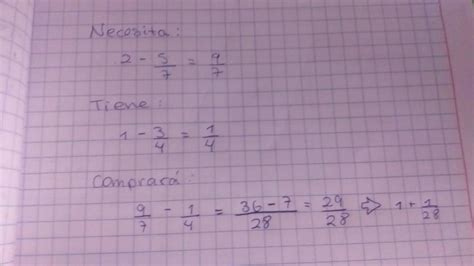 Necesita:
2 - 5/7 = 9/7
Tiene:
1 - 3/4 = 1/4
Comprará:
9/7 - 1/4 = 36-7/28 = 29/28 ⇨ 1 + 1/28